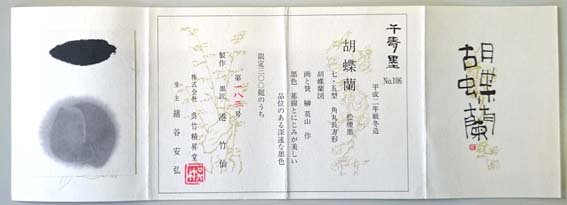 胡蝶蘭
千寿墨
No.106
平成二年厳冬造
胡蝶蘭
松煙墨
七・五型 角丸長方形
胡蝶蘭図
画と賛 榊莫山 作
墨色 基線とにじみが美しい
品位のある深遠な墨色
限定三〇〇挺のうち
第一八二号
製作 墨匠 港竹仙
株式会社 呉竹精昇堂
墨主 綿谷安弘